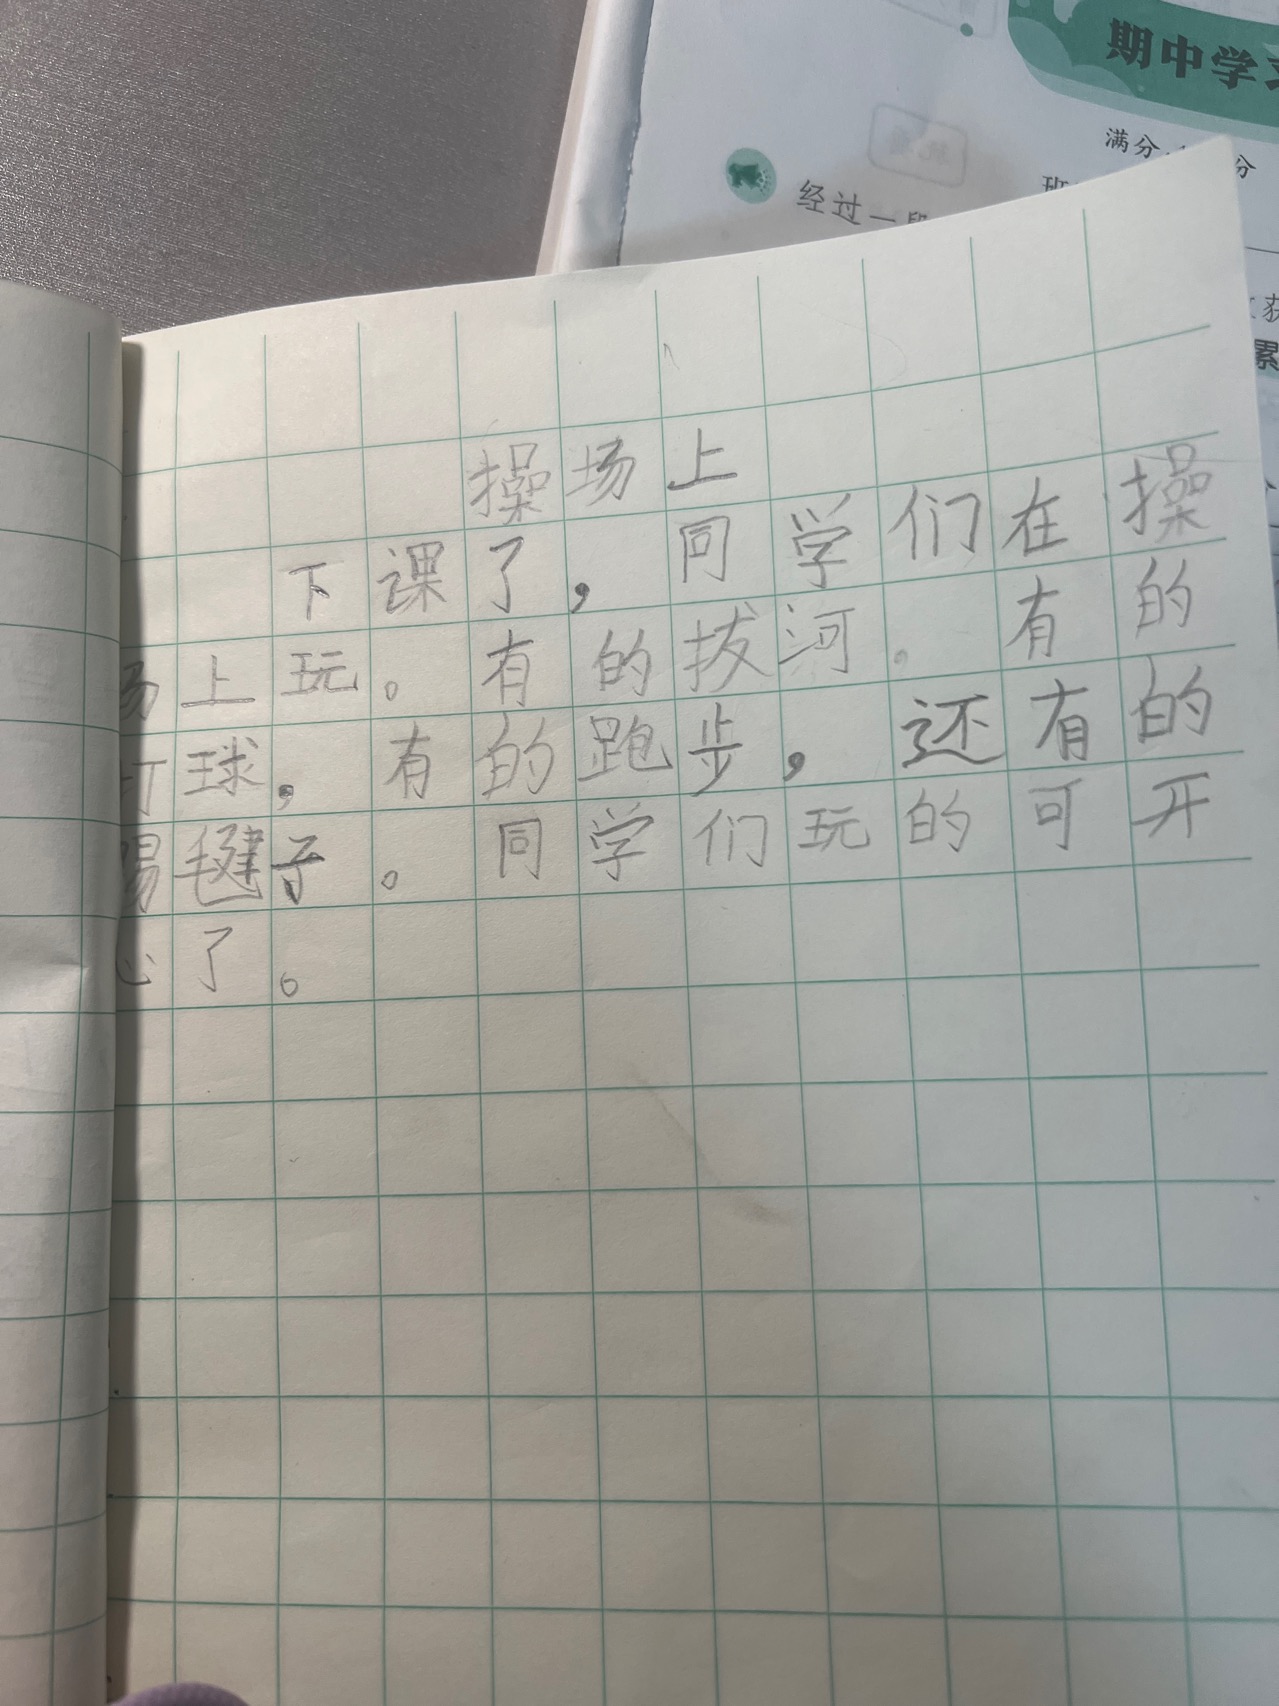 期中学
满分
分
经过一段
操场上
下课了，同学们在操
场上玩。有的拔河。有的
打球，有的跑步，还有的
踢毽子。同学们玩的可开
心了。